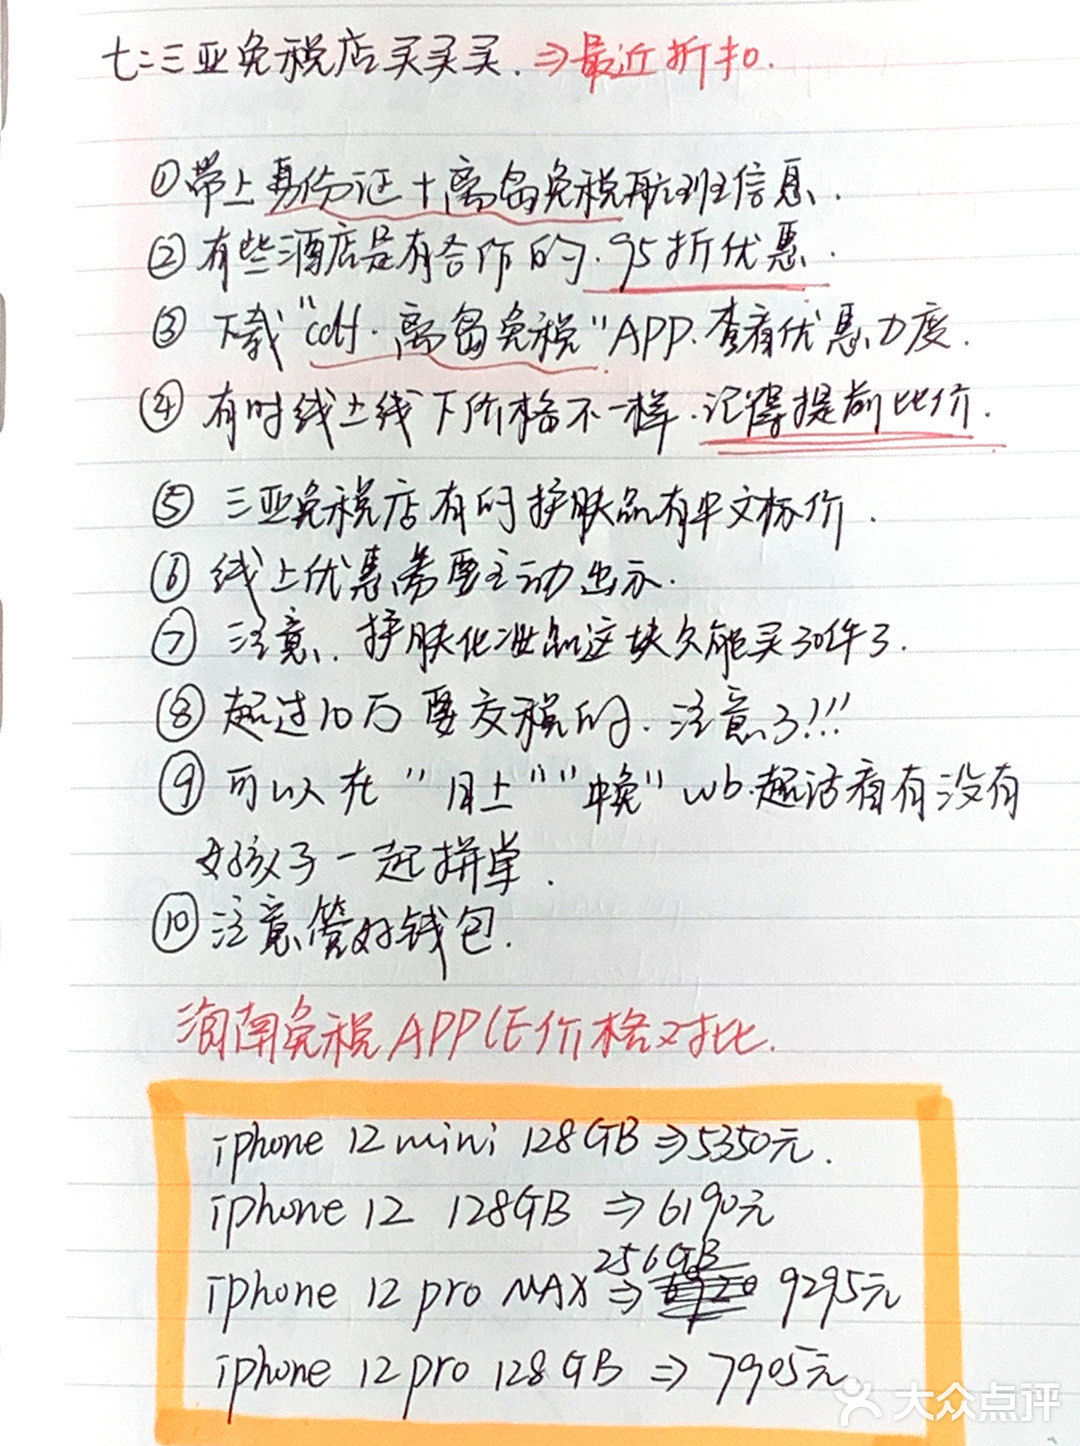 七:三亚免税店买买买.⇒最近折扣.
①带上身份证+离岛免税航班信息.
②有些酒店是有合作的.95折优惠.
③下载"cdf·离岛免税"APP.查看优惠力度.
④有时线上线下价格不一样.记得提前比价.
⑤三亚免税店有的护肤品有中文标价.
⑥线上优惠需要主动出示.
⑦注意.护肤化妆品这块只能买30件了.
⑧超过10万要交税的.注意了!!!
⑨可以在"日上""中免"wb.超话看有没有
好孩子一起拼单.
⑩注意管好钱包.
海南免税APPLE价格对比.
iphone 12 mini 128GB⇒5350元.
iphone 12 128GB ⇒6190元
256GB
iphone 12 pro MAX⇒ 9295元
iphone 12 pro 128GB ⇒ 7905元
大众点评